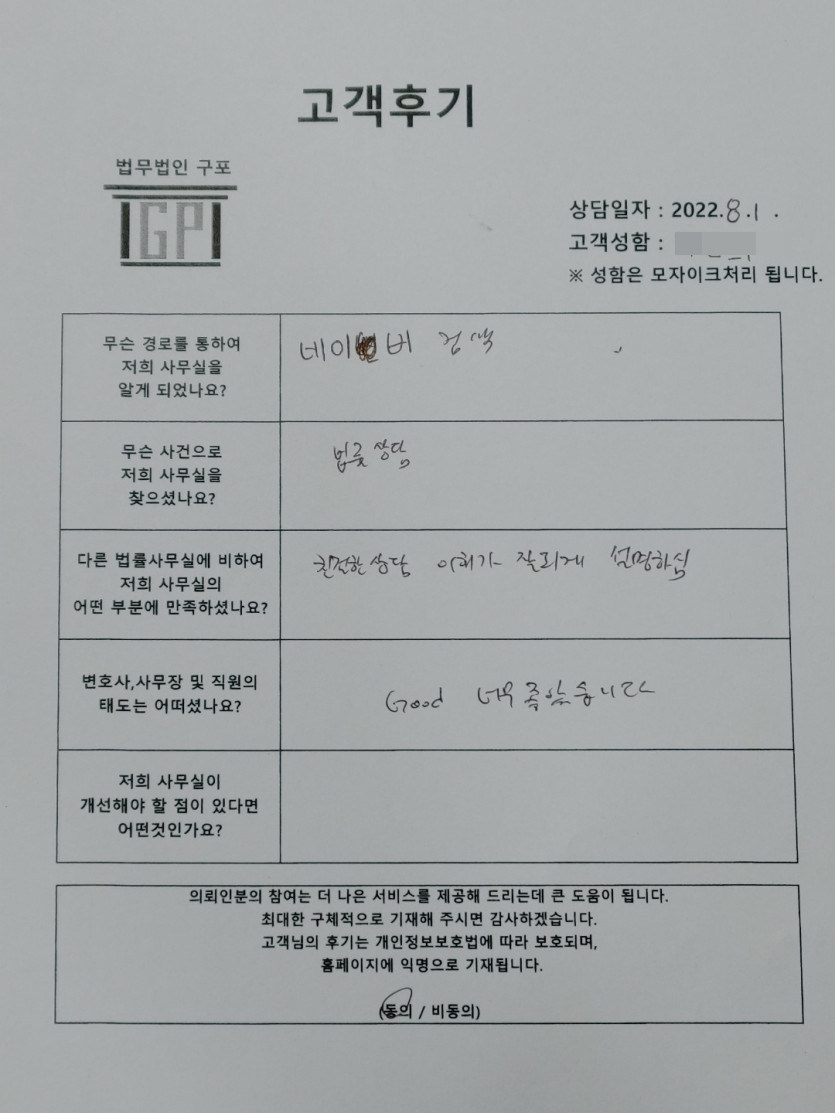 고객후기
법무법인 구포
GP
상담일자 : 2022.8.1.
고객성함 :
※ 성함은 모자이크처리 됩니다.
무슨 경로를 통하여
저희 사무실을
알게 되었나요?
네이버 검색
무슨 사건으로
저희 사무실을
찾으셨나요?
법률상담
다른 법률사무실에 비하여
저희 사무실의
어떤 부분에 만족하셨나요?
친절한 상담 이해가 잘되게 설명하심
변호사,사무장 및 직원의
태도는 어떠셨나요?
Good 너무 좋았습니다
저희 사무실이
개선해야 할 점이 있다면
어떤것인가요?
의뢰인분의 참여는 더 나은 서비스를 제공해 드리는데 큰 도움이 됩니다.
최대한 구체적으로 기재해 주시면 감사하겠습니다.
고객님의 후기는 개인정보보호법에 따라 보호되며,
홈페이지에 익명으로 기재됩니다.
(동의 / 비동의)